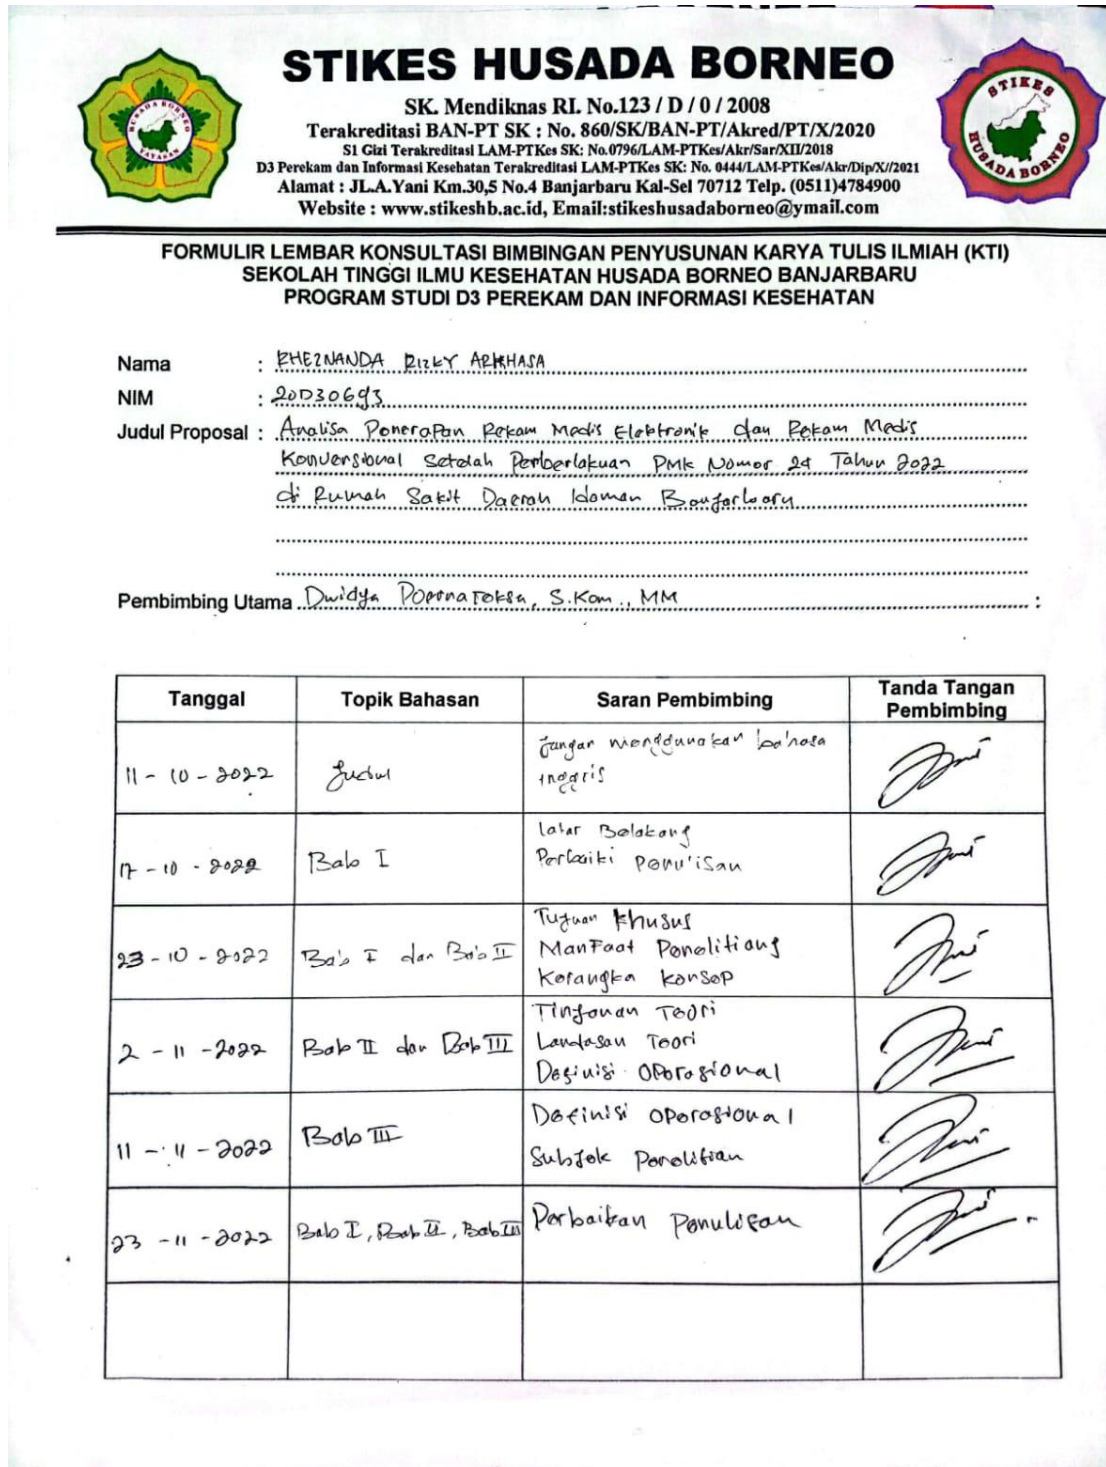 STIKES HUSADA BORNEO
SK. Mendiknas RI. No.123 / D / 0 / 2008
Terakreditasi BAN-PT SK : No. 860/SK/BAN-PT/Akred/PT/X/2020
S1 Gizi Terakreditasi LAM-PTKes SK: No.0796/LAM-PTKes/Akr/Sar/XII/2018
D3 Perekam dan Informasi Kesehatan Terakreditasi LAM-PTKes SK: No. 0444/LAM-PTKes/Akr/Dip/X//2021
Alamat : JL.A.Yani Km.30,5 No.4 Banjarbaru Kal-Sel 70712 Telp. (0511)4784900
Website : www.stikeshb.ac.id, Email:stikeshusadaborneo@ymail.com
HUSADA BORNEO
YAYASAN
STIKES
HUSADA BORNEO
FORMULIR LEMBAR KONSULTASI BIMBINGAN PENYUSUNAN KARYA TULIS ILMIAH (KTI)
SEKOLAH TINGGI ILMU KESEHATAN HUSADA BORNEO BANJARBARU
PROGRAM STUDI D3 PEREKAM DAN INFORMASI KESEHATAN
Nama : RHEZNANDA RIZKY ARKHASA
NIM : 20D30693
Judul Proposal : Analisa Penerapan Rekam Medis Elektronik dan Rekam Medis
Konvensional Setelah Pemberlakuan PMK Nomor 24 Tahun 2022
di Rumah Sakit Daerah Idaman Banjarbaru
Pembimbing Utama Dwidya S.Kom., MM :
Tanggal Topik Bahasan Saran Pembimbing Tanda Tangan Pembimbing
11 - 10 - 2022 Judul Jangan menggunakan bahasa
inggris
17 - 10 - 2022 Bab I Latar Belakang
Perbaiki Penulisan
23 - 10 - 2022 Bab I dan Bab II Tujuan Khusus
Manfaat
Kerangka Konsep
2 - 11 - 2022 Bab II dan Bab III Tinjauan Teori
Landasan Teori
Definisi Operasional
11 - 11 - 2022 Bab III Definisi Operasional
Subjek Penelitian
23 - 11 - 2022 Bab I, Bab II, Bab III Perbaikan Penulisan